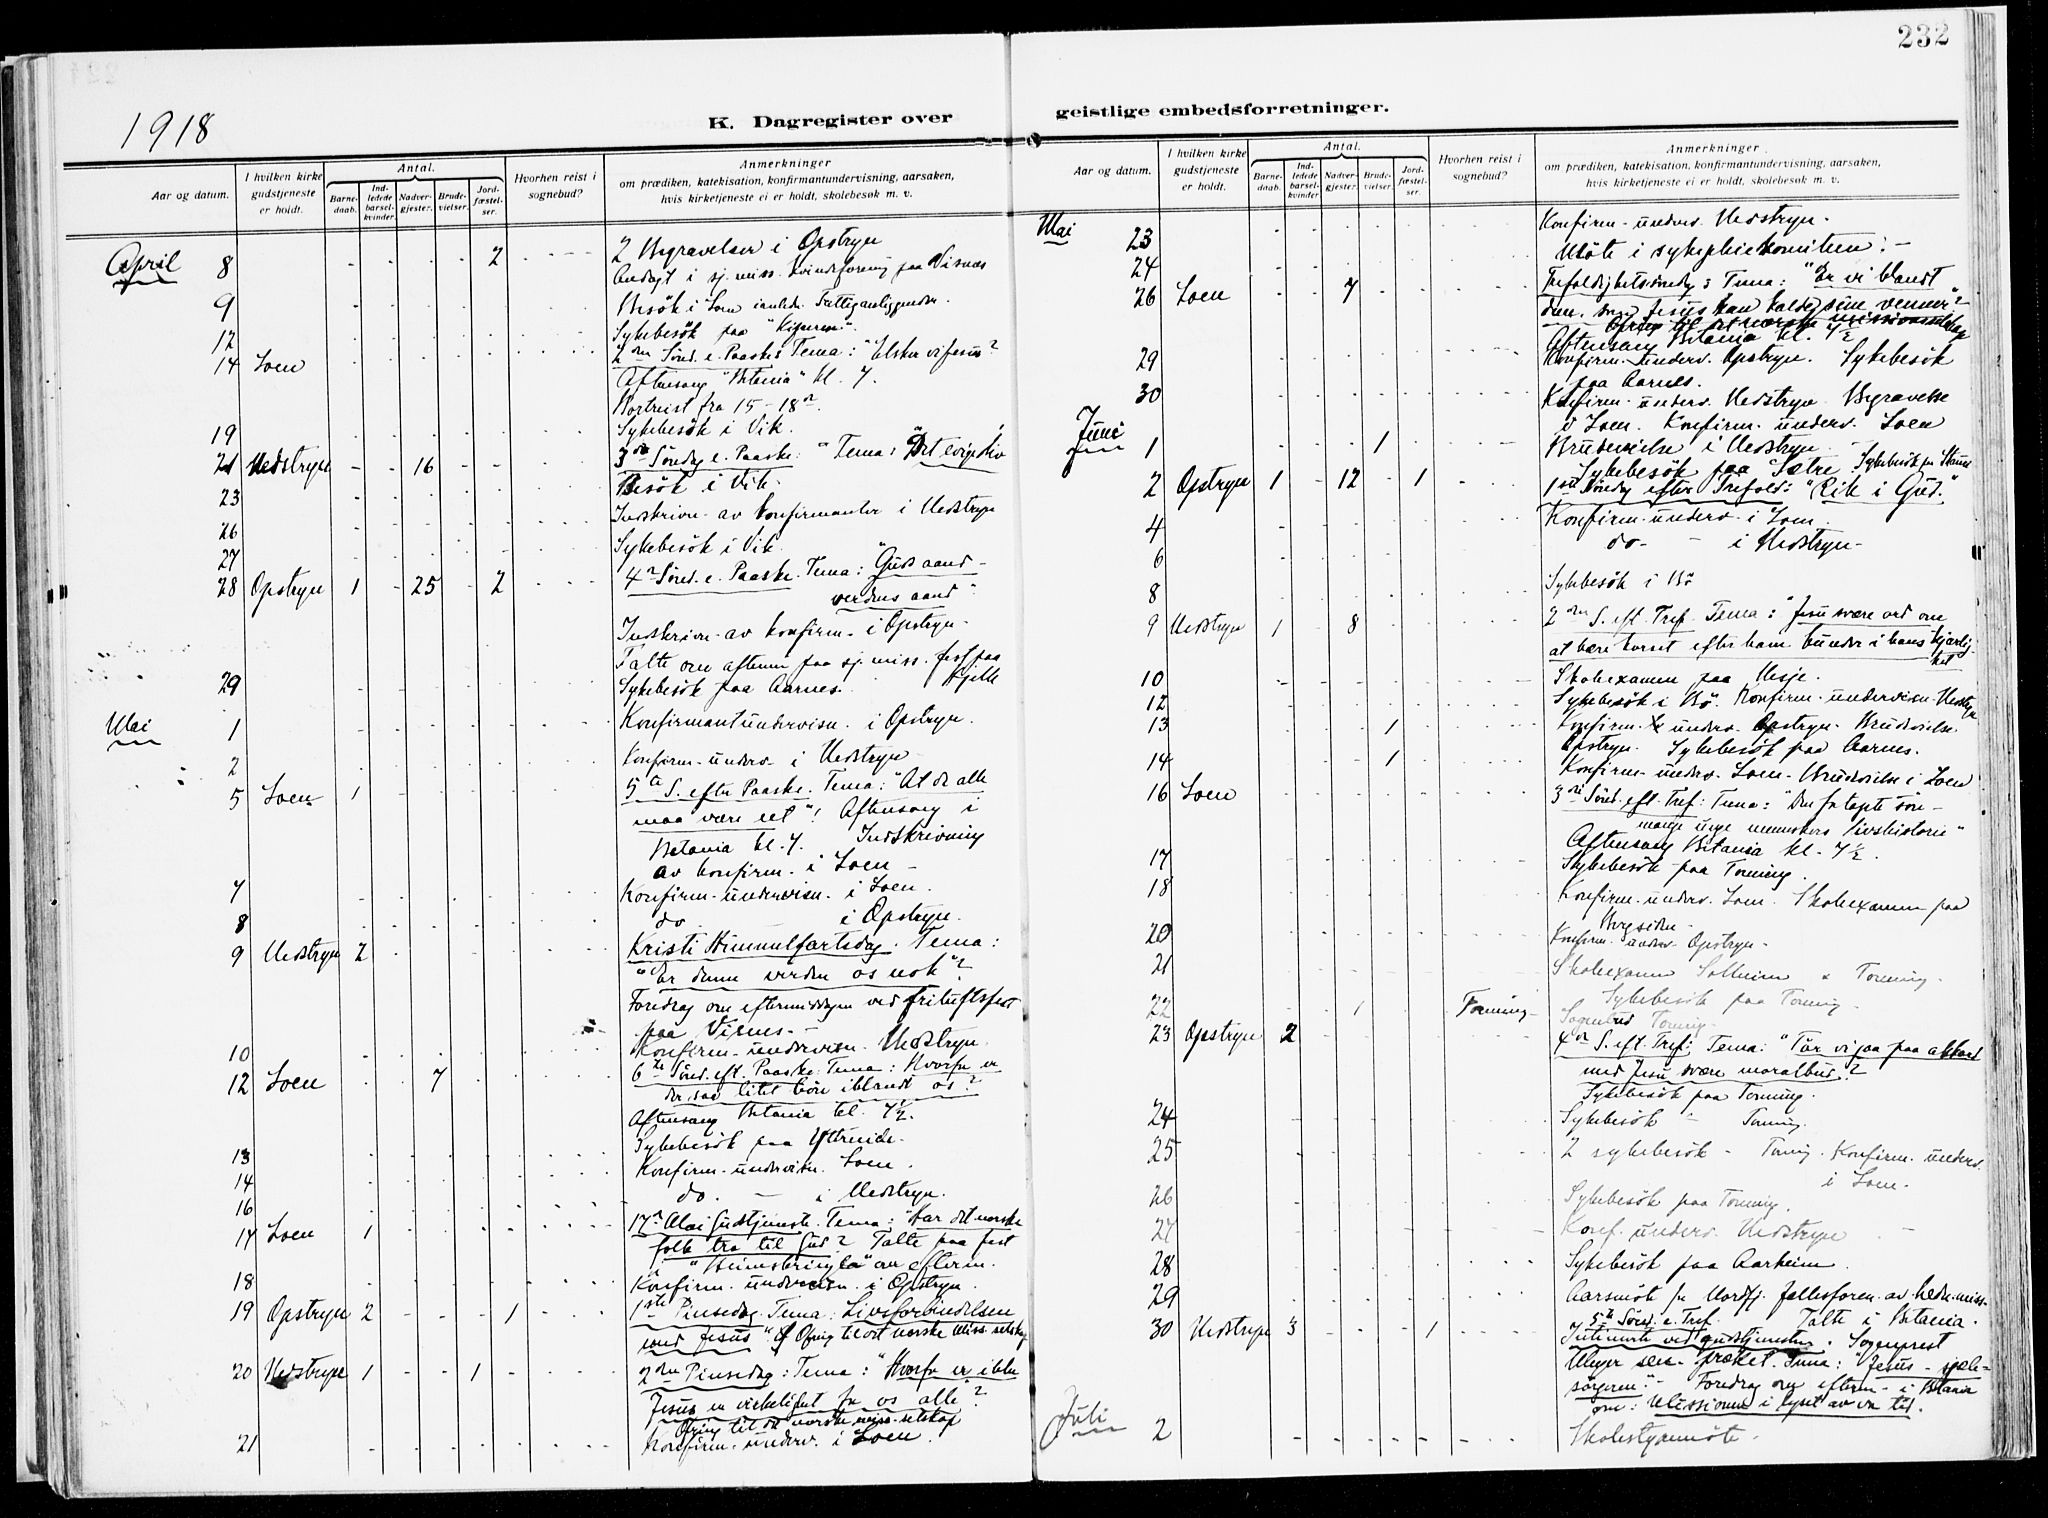 232
1918
K. Dagregister over
geistlige embedsforretninger.
Aar og datum.
I hvilken kirke gudstjeneste er holdt.
Antal.
Barnedaab.
Indledede barselkvinder.
Nadvergjester.
Brudevielser.
Jordfæstelser.
Hvorhen reist i sognebud?
Anmerkninger
om prædiken, katekisation, konfirmantundervisning, aarsaken,
hvis kirketjeneste ei er holdt, skolebesøk m. v.
April 8 2 2 Begravelser i Opstryn
Andagt i sj. miss. kvindeforening paa Visnes
9 Besök i Loen Fattiganliggender.
12 Sykebesök paa
14 Loen 2den Sönd. e. Paaske Tema: "Elsker vi Jesus?
Aftensang "Betania" kl. 7.
Bortreist fra 15-18de.
19 Sykebesök i Vik.
21 Nedstryn 16 3die Söndag e. Paaske: Tema: "Det evige liv
23 Besök i Vik.
26 Indskrivn. av konfirmanter i Nedstryn
27 Sykebesök i Vik.
28 Opstryn 1 25 2 4de Sönd. e. Paaske. Tema: "Guds aand -
verdens aand"
Indskrivn. av konfirm. i Opstryn.
Talte om aftenen paa sj. miss. fest paa
29 Sykebesök paa Aarnes.
Mai 1 Konfirmantundervisn. i Opstryn.
2 Konfirm. underv. i Nedstryn
5 Loen 1 5te S. efter Paaske. Tema: "At de alle
maa være ett"! Aftensang i
Betania kl. 7. Indskrivning
av konfirm. i Loen -
7 Konfirm. undervisn. i Loen.
8 do i Opstryn.
9 Nedstryn 2 Kristi Himmelfartsdag. Tema:
"Er denne verden os nok"?
Foredrag om eftermiddagen ved friluftsfest
paa Visnes. -
10 Konfirm. undervisn. Nedstryn.
12 Loen 7 6te Sönd. eft. Paaske. Tema: Hvorfor er
der saa litet bön iblandt os?
Aftensang Betania kl. 7½.
13 Sykebesök paa Ytreeide.
14 Konfirm. undervisn. Loen.
16 do. - i Nedstryn.
17 Loen 1 17de Mai Gudstjeneste. Tema: "Har det norske
folk tro til Gud? Talte paa fest
i "Heimskringla" om efterm.
18 Konfirm. undervisn. i Opstryn.
19 Opstryn 2 1 1ste Pinsedag. Tema: Livsforbindelsen
med Jesus". Ofring til det norske Miss. selskap
20 Nedstryn 1 1 2den Pinsedag: Tema: "Hvorfor er ikke
Jesus en virkelighet for os alle?
Ofring til det norske miss. selskap
21 Konfirm. underv. i Loen.
Mai 23 Konfirm. underv. Nedstryn.
24 Möte i sykepleiekomiteen: -
26 Loen 7 Trefoldighetssöndag: Tema: "Er vi blandt
dem, som Jesus kan kalde sine venner"?
Ofring til det norske missionsselskap
Aftensang Betania kl. 7½
29 Konfirm. underv. Opstryn. Sykebesök
paa Aarnes.
30 Konfirm. underv. Nedstryn. Begravelse
i Loen. Konfirm. underv. Loen
Juni 1 1 Brudevielse i Nedstryn
Sykebesök paa Sætre. Sykebesök
2 Opstryn 1 12 1 1ste Söndag efter Trefold: "Rik i Gud."
4 Konfirm. underv. i Loen.
6 do - i Nedstryn -
8 Sykebesök i Bö
9 Nedstryn 1 8 2den S. eft. Tref. Tema: "Jesu svære ord om
at bære korset efter ham bunder i hans kjærlighet
10 Skoleexamen paa Hesje.
12 Sykebesök i Bö. Konfirm. undervisn. Nedstryn
13 1 Konfirm. underv. Opstryn. Brudevielse
Opstryn. Sykebesök paa Aarnes.
14 1 Konfirm. underv. Loen. Brudevielse i Loen
16 Loen 3die Sönd. eft. Tref: Tema: "Den fortapte sön -
mange unge menneskers livshistorie"
Aftensang Betania kl. 7½.
17 Sykebesök paa Tonning.
18 Konfirm. underv. Loen. Skoleexamen paa
Bergsiden -
20 Konfirm. underv. Opstryn.
21 Skoleexamen Solheim & Tonning.
Sykebesök paa Tonning -
22 1 Tonning - Sognebud Tonning.
23 Opstryn 2 4de S. eft. Tref: Tema: "Tör vi gaa paa akkord
med Jesu svære moralbud?
Sykebesök paa Tonning.
24 Sykebesök - Tonning.
25 2 sykebesök - Tonning. Konfirm. underv.
i Loen.
26 Sykebesök paa Tonning.
27 Konf. underv. Nedstryn -
28 Sykebesök paa Aarheim.
29 Aarsmöt for Nordfj. fællesforen. av hedn. miss.
30 Nedstryn 3 1 5te Sönd. e. Tref. Talte i Betania.
ved gudstjenesten. Sogneprest
Meyer sen. præket. Tema: "Jesus - sjæle-
sörgeren". - Foredrag om efterm. i Betania
om: Missionen i lyset av vor tid.
Juli 2 Skolestyremöte.